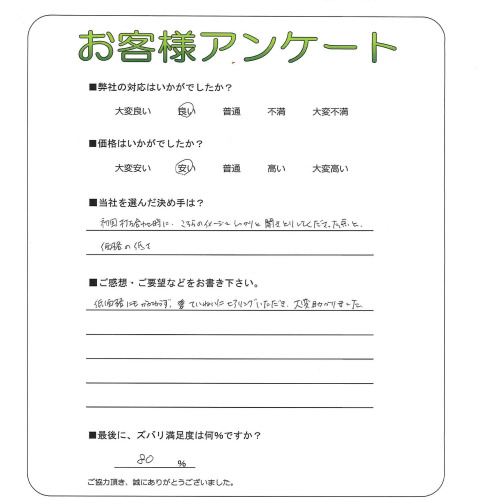 お客様アンケート
■弊社の対応はいかがでしたか？
大変良い 良い 普通 不満 大変不満
■価格はいかがでしたか？
大変安い 安い 普通 高い 大変高い
■当社を選んだ決め手は？
初回打ち合わせ時に、こちらのイメージをしっかりと聞きとりしてくださった点と、
価格の低さ
■ご感想・ご要望などをお書き下さい。
低価格にもかかわらず、ていねいにヒアリングいただき、大変助かりました。
■最後に、ズバリ満足度は何%ですか？
80 %
ご協力頂き、誠にありがとうございました。